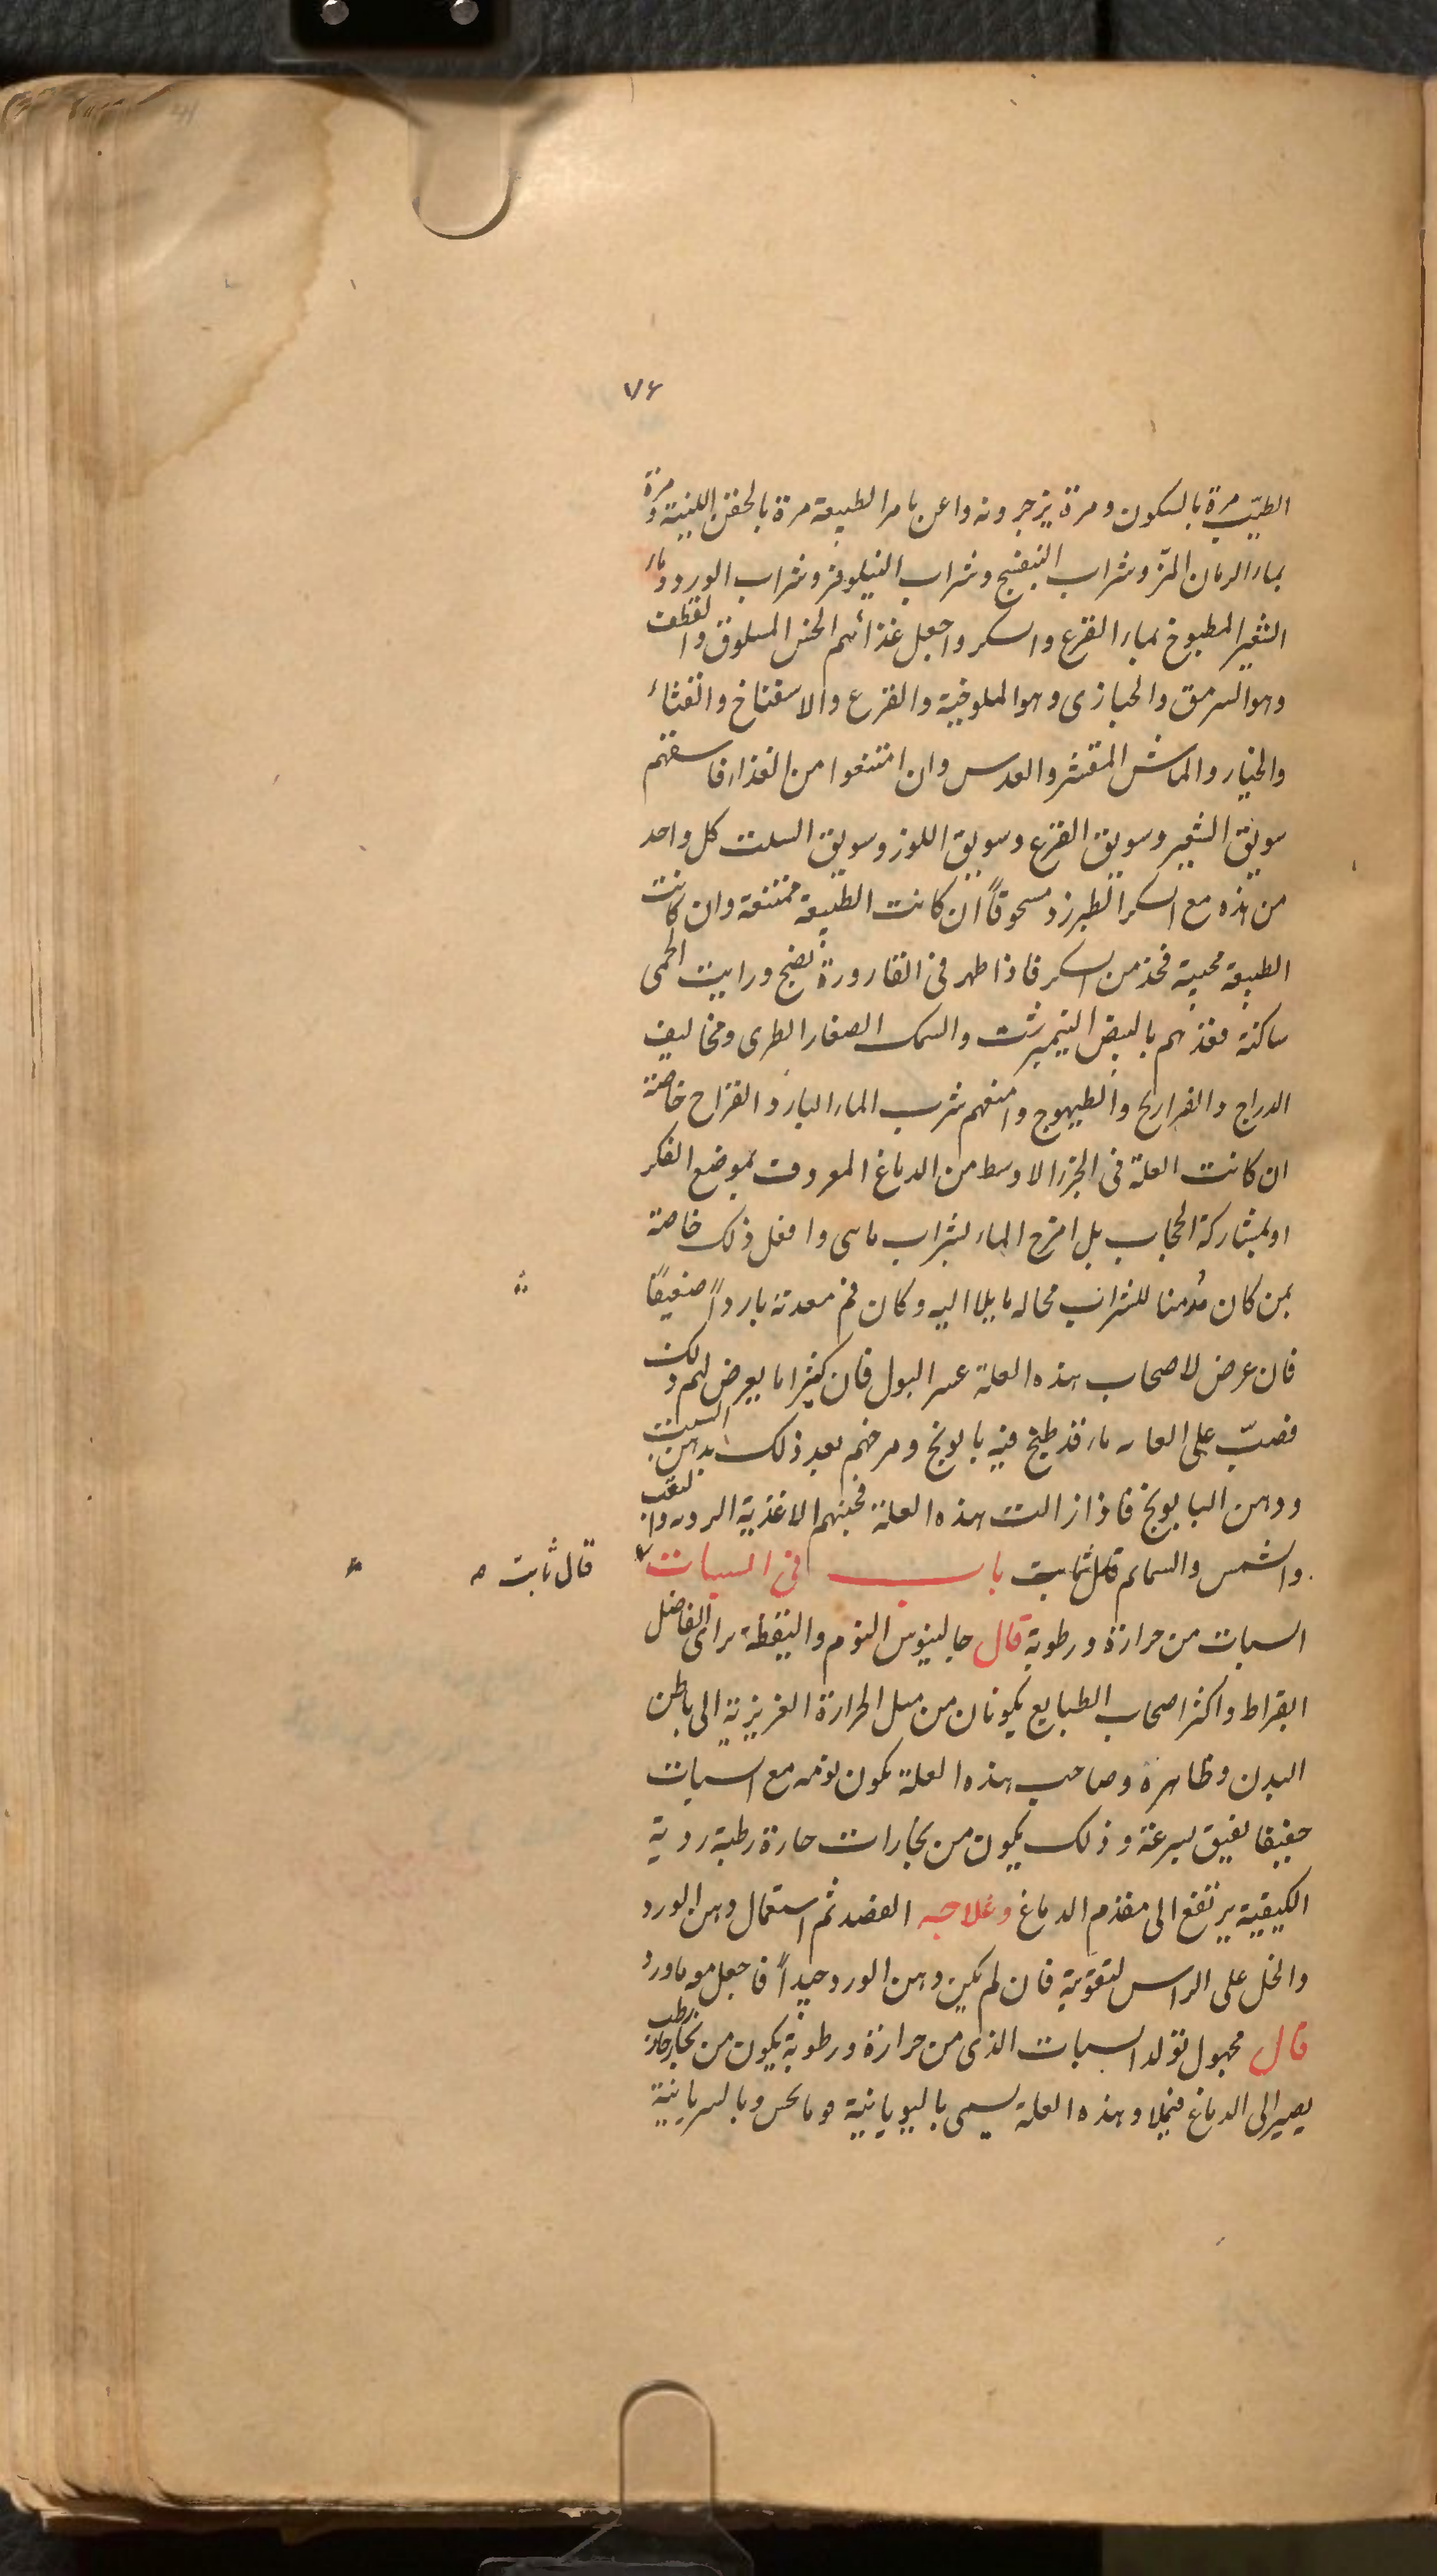 ٧٦
الطيّب مرة بالسكون ومرة يزجرونه واعن بامر الطبيعة مرة بالحقن اللينة ومرة
بماء الرمان المزّ وشراب البنفسج وشراب النيلوفر وشراب الورد وماء
الشعير المطبوخ بماء القرع والسكر واجعل غذائهم الخس المسلوق والقطف
وهو السرمق والخبازى وهو الملوخية والقرع والاسفناخ والقثاء
والخيار والماش المقشر والعدس وان امتنعوا من الغذاء فاسقهم
سويق الشعير وسويق القرع وسويق اللوز وسويق السلت كل واحد
من هذه مع السكر الطبرزد مسحوقاً ان كانت الطبيعة ممتنعة وان كانت
الطبيعة مجيبة فخذ من السكر فاذا ظهر فى القارورة نضج ورايت الحمى
ساكنة فغذهم بالبيض النيمبرشت والسمك الصغار الطرى ومخاليف
الدراج والفراريج والطيهوج وامنعهم شرب الماء البارد القراح خاصة
ان كانت العلة فى الجزء الاوسط من الدماغ المعروف بموضع الفكر
او بمشاركة الحجاب بل امزج الماء بشراب ماسى وافعل ذلك خاصة
بمن كان مُدمنا للشراب محاله مايلا اليه وكان فم معدته بارداً ضعيفاً
فان عرض لاصحاب هذه العلة عسر البول فان كثيرا ما يعرض لهم ذلك
فصبّ على العانه ماء قد طبخ فيه بابونج ومرخهم بعد ذلك بدهن السبت
ودهن البابونج فاذا زالت هذه العلة فجنبهم الاغذية الرديه والتعب
والشمس والسمايم قال ثابت باب فى السبات
قال ثابت
السبات من حرارة ورطوبة قال جالينوس النوم واليقظة براى الفاضل
ابقراط واكثر اصحاب الطبايع يكونان من ميل الحرارة الغريزية الى باطن
البدن وظاهره وصاحب هذه العلة يكون نومه مع السبات
خفيفا يفيق بسرعة وذلك يكون من بخارات حارة رطبة ردية
الكيفية يرتفع الى مقدم الدماغ وعلاجه الفصد ثم استعمال دهن الورد
والخل على الراس لتقوّية فان لم يكن دهن الورد جيداً فاجعل معه ماورد
قال مجهول تولد السبات الذى من حرارة ورطوبة يكون من بخار حار رطب
يصير الى الدماغ فيملاه وهذه العلة يسمى باليونانية وبالسريانية